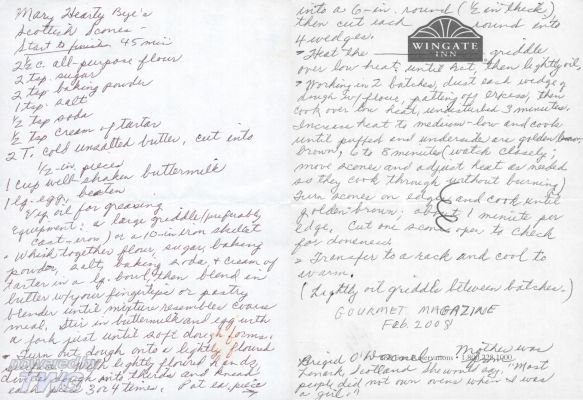 Mary Hearty Bye's
Scottish Scones -
Start to finish 45 min
2½ c. all-purpose flour
2 tsp. sugar
2 tsp. baking powder
1 tsp. salt
½ tsp soda
½ tsp cream of tartar
2 T. cold unsalted butter, cut into
½-in. pieces
1 cup well-shaken buttermilk
1 lg. egg, beaten
Veg. oil for greasing
Equipment: a large griddle (preferably
cast-iron) or a 10-in iron skillet
• Whisk together flour, sugar, baking
powder, salt, baking soda, & cream of
tartar in a lg. bowl, then blend in
butter w/your fingertips or pastry
blender until mixture resembles coarse
meal. Stir in buttermilk and egg with
a fork just until soft dough forms.
• Turn out dough onto a lightly floured
with lightly floured hands,
dough into thirds and knead
each piece 3 or 4 times. Pat ea. piece
into a 6-in. round (½ in thick)
then cut each round into
4 wedges.
WINGATE
INN
• Heat the griddle
over low heat until hot, then lightly oil,
• Working in 2 batches, dust each wedge of
dough w/flour, patting off excess, then
cook over low heat, undisturbed 3 minutes.
Increase heat to medium-low and cook
until puffed and undersides are golden brown,
brown, 6 to 8 minutes (watch closely;
move scones and adjust heat as needed
so they cook through without burning)
Turn scones on edge and cook until
golden brown; about 1 minute per
edge. Cut one scone open to check
for doneness.
• Transfer to a rack and cool to
warm.
(Lightly oil griddle between batches.)
GOURMET MAGAZINE
Feb. 2008
Brigid O' Mother was
Lanark, Scotland She would say, "Most
people did not own ovens when I was
a girl."
powered by